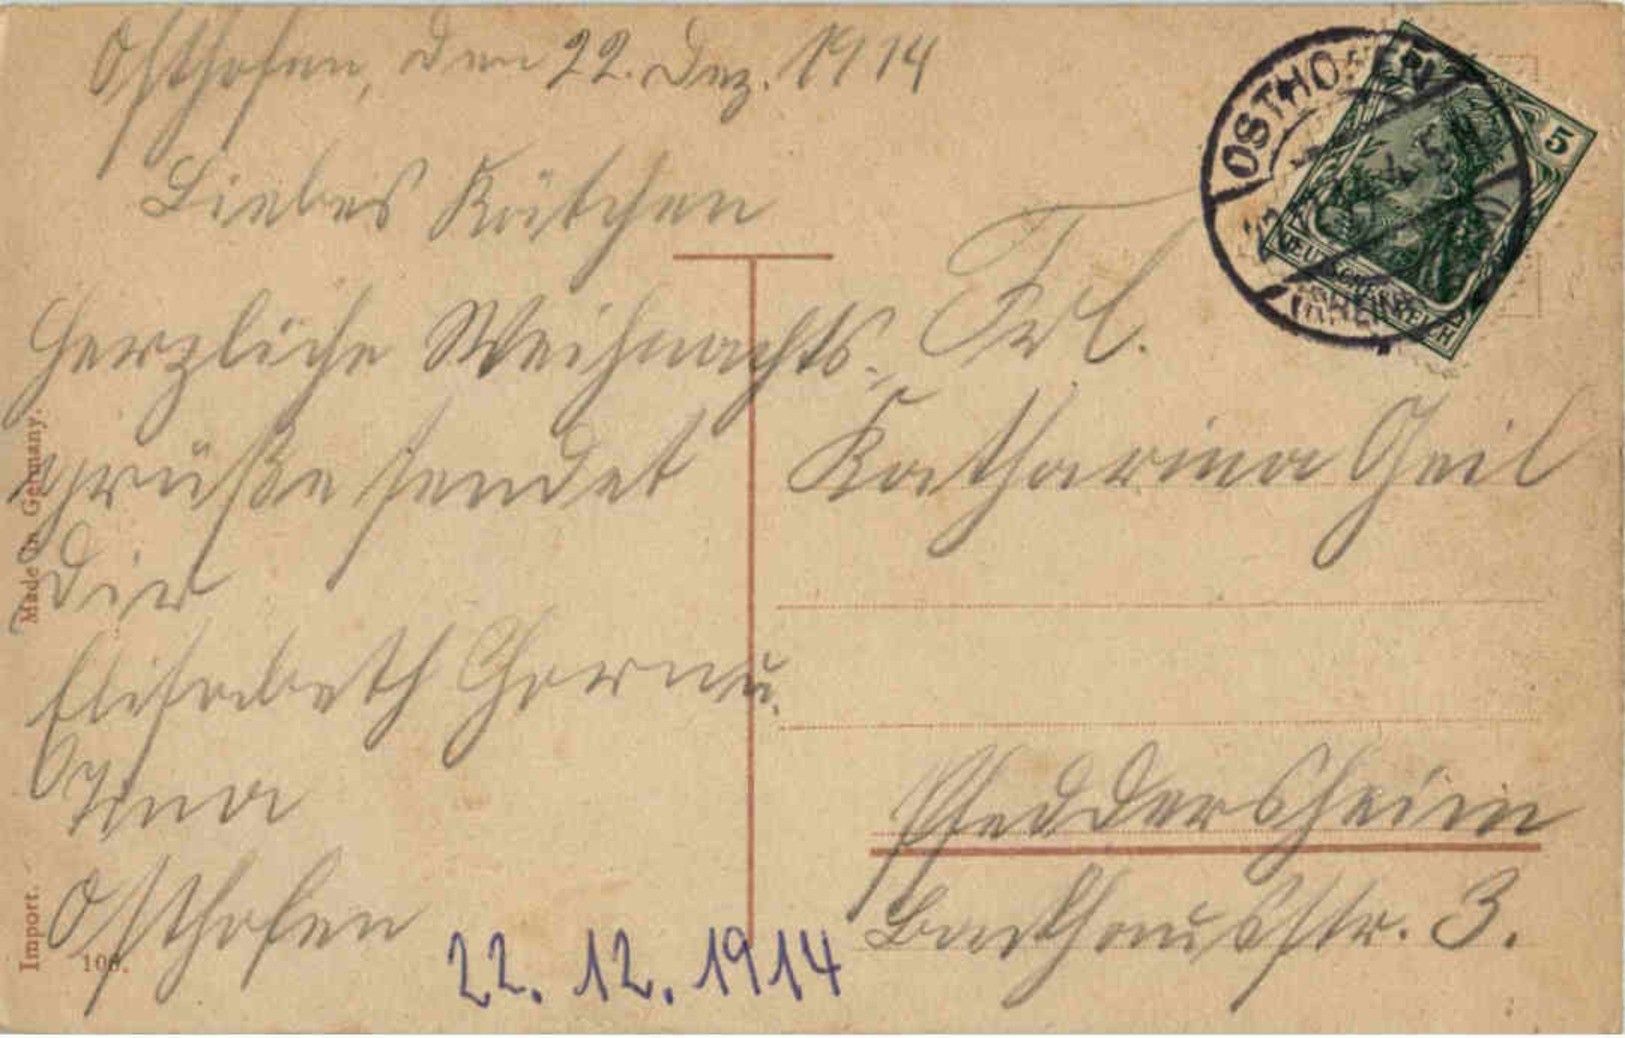 Osthofen, den 22. Dez. 1914
Liebes Kätchen
Herzliche Weihnachts-
grüße sendet
Dir
Elisabeth u.
Anna
Osthofen
22. 12. 1914
Frl.
Katharina Geil
Pfeddersheim
Backhausstr. 3.
OSTHOFEN
5
DEUTSCHES REICH
Made in Germany.
Import.
106.